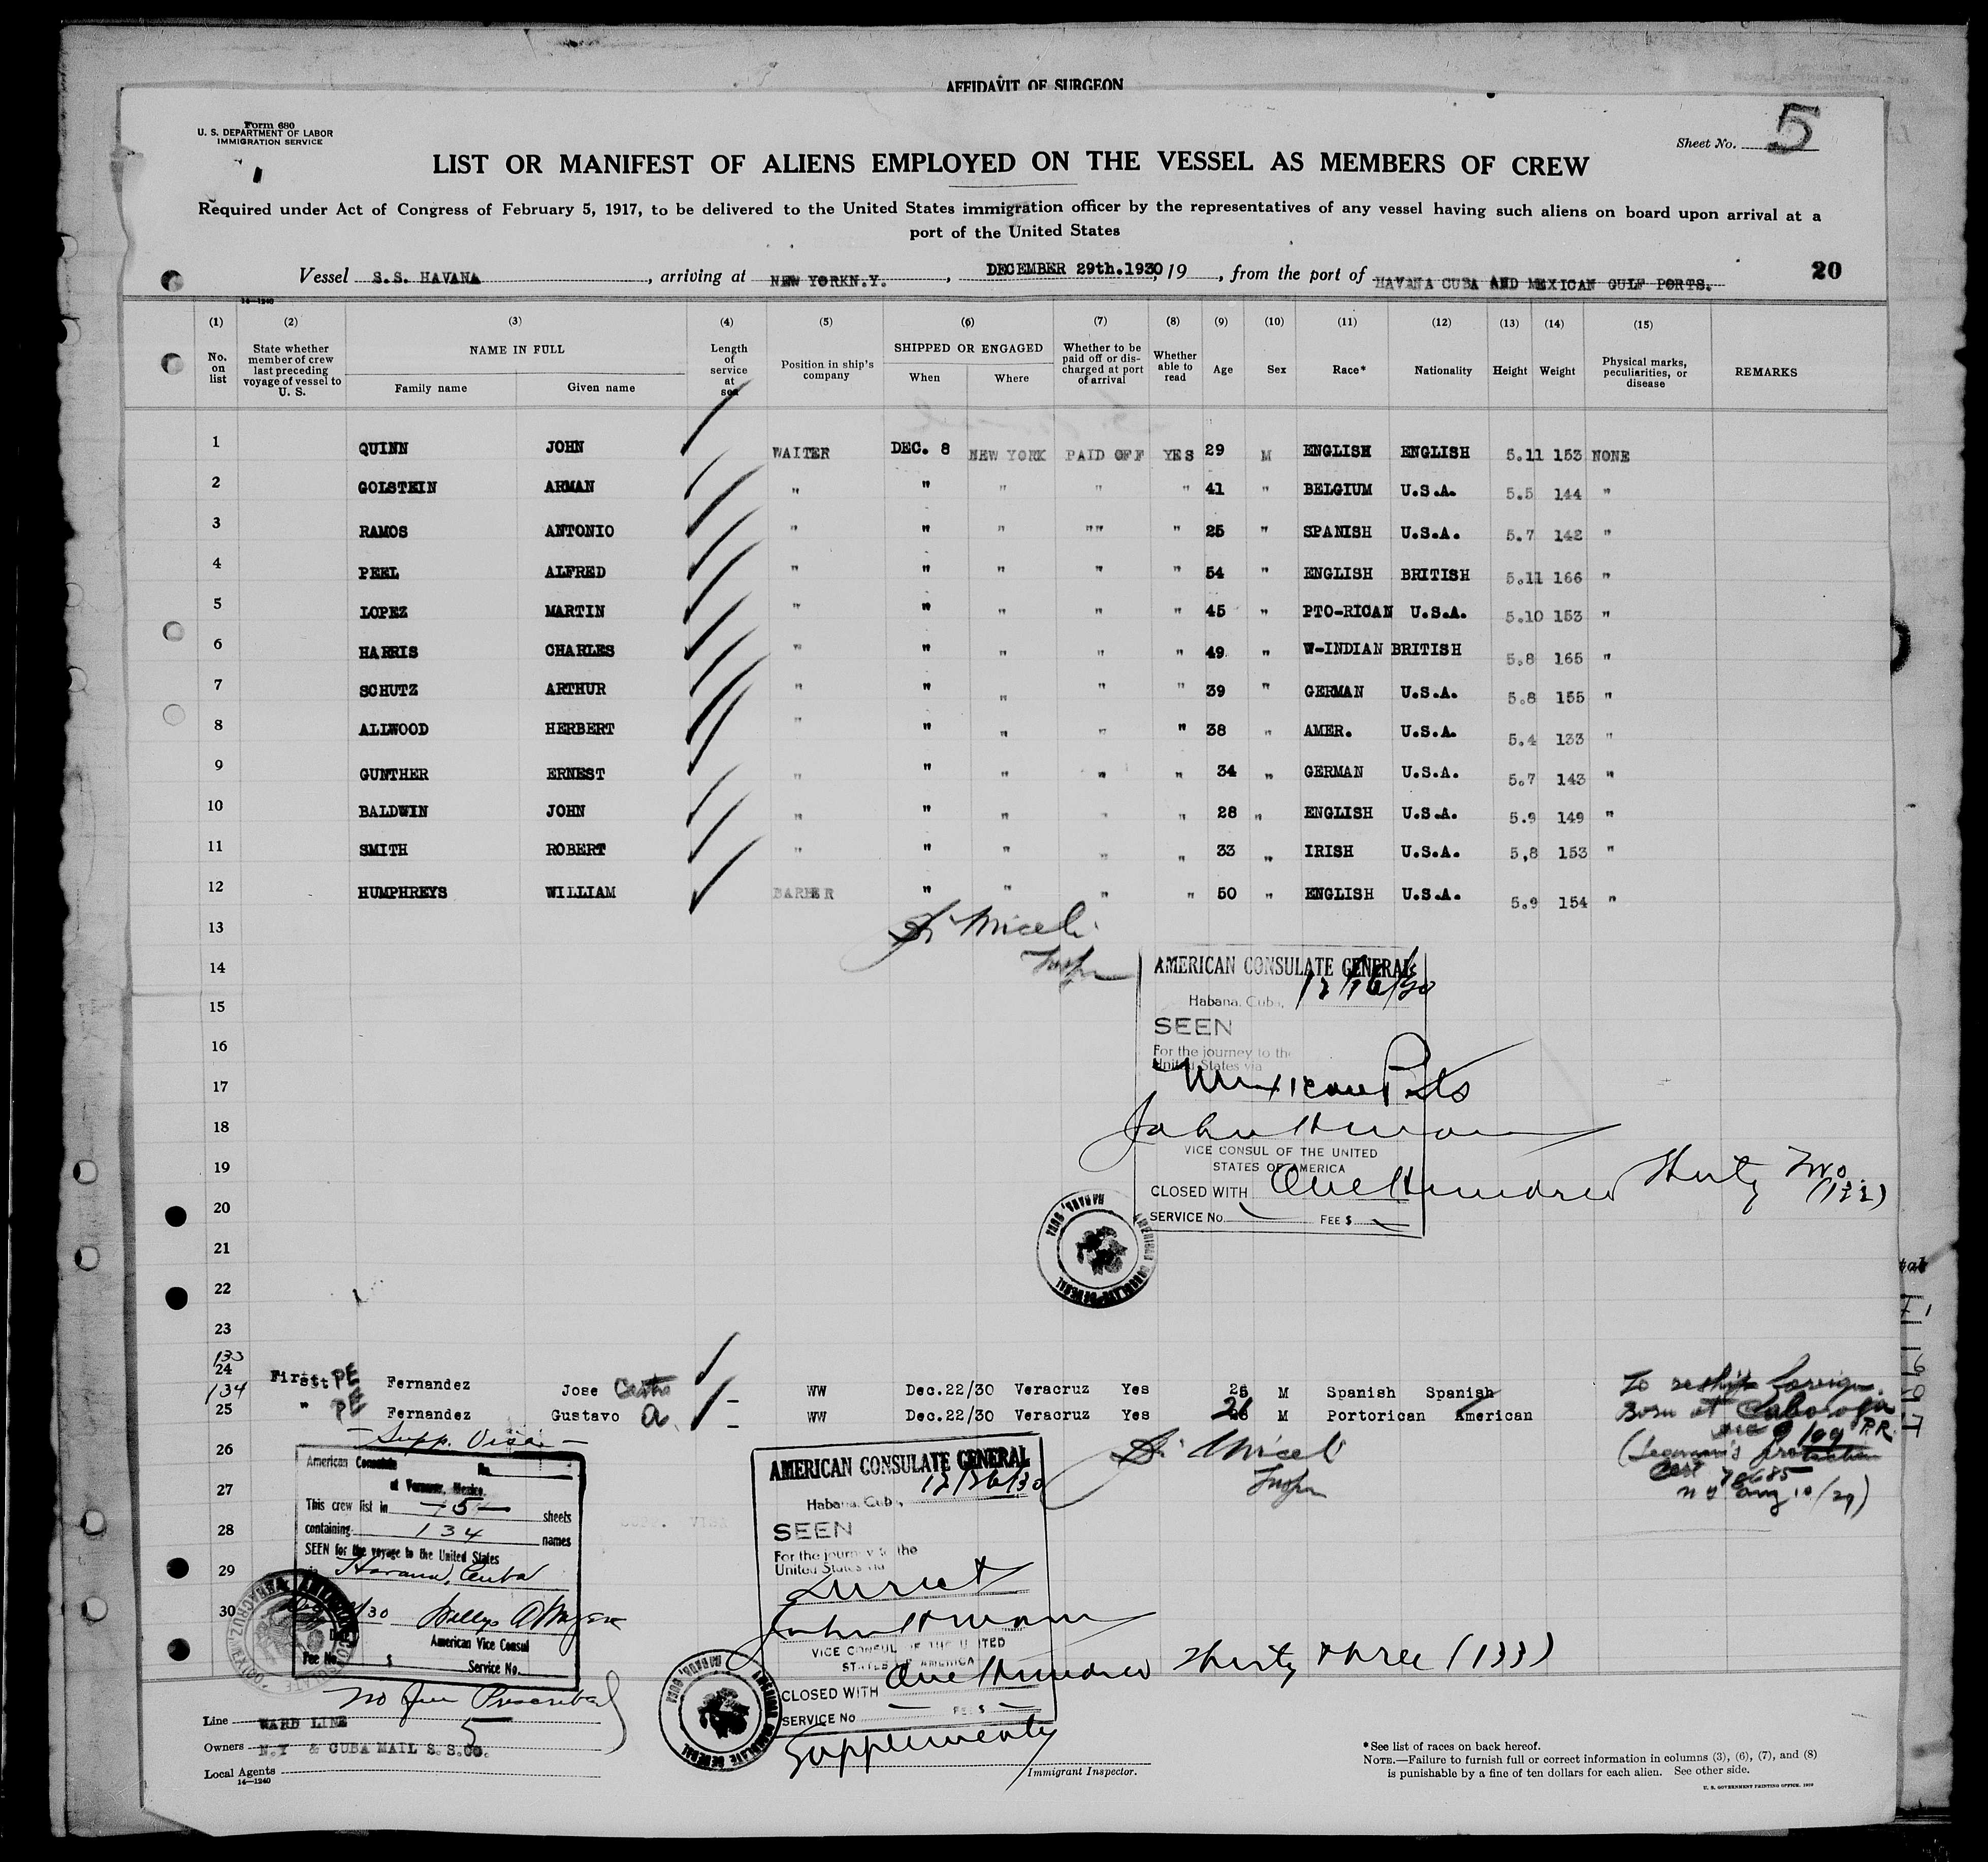 AFFIDAVIT OF SURGEON
Form 680
U. S. DEPARTMENT OF LABOR
IMMIGRATION SERVICE
Sheet No. 5
LIST OR MANIFEST OF ALIENS EMPLOYED ON THE VESSEL AS MEMBERS OF CREW
Required under Act of Congress of February 5, 1917, to be delivered to the United States immigration officer by the representatives of any vessel having such aliens on board upon arrival at a
port of the United States
Vessel S.S. HAVANA, arriving at NEW YORKN.Y., DECEMBER 29th.1930, 19, from the port of HAVANA CUBA AND MEXICAN GULF PORTS. 20
14—1240
(1) (2) (3) (4) (5) (6) (7) (8) (9) (10) (11) (12) (13) (14) (15)
No. on list
State whether member of crew last preceding voyage of vessel to U. S.
NAME IN FULL
Family name Given name
Length of service at sea
Position in ship's company
SHIPPED OR ENGAGED
When Where
Whether to be paid off or discharged at port of arrival
Whether able to read
Age Sex Race* Nationality Height Weight
Physical marks, peculiarities, or disease
REMARKS
1 QUINN JOHN WAITER DEC. 8 NEW YORK PAID OFF YES 29 M ENGLISH ENGLISH 5.11 153 NONE
2 GOLSTEIN ARMAN " " " " " 41 " BELGIUM U.S.A. 5.5 144 "
3 RAMOS ANTONIO " " " "" " 25 " SPANISH U.S.A. 5.7 142 "
4 PEEL ALFRED " " " " " 54 " ENGLISH BRITISH 5.11 166 "
5 LOPEZ MARTIN " " " " " 45 " PTO-RICAN U.S.A. 5.10 153 "
6 HARRIS CHARLES " " " " " 49 " W-INDIAN BRITISH 5.8 165 "
7 SCHUTZ ARTHUR " " " " " 39 " GERMAN U.S.A. 5.8 155 "
8 ALLWOOD HERBERT " " " " " 38 " AMER. U.S.A. 5.4 133 "
9 GUNTHER ERNEST " " " " " 34 " GERMAN U.S.A. 5.7 143 "
10 BALDWIN JOHN " " " " " 28 " ENGLISH U.S.A. 5.9 149 "
11 SMITH ROBERT " " " " " 33 " IRISH U.S.A. 5,8 153 "
12 HUMPHREYS WILLIAM BARBER " " " " 50 " ENGLISH U.S.A. 5.9 154 "
13
14
15
16
17
18
19
20
21
22
23
AMERICAN CONSULATE GENERAL
Habana, Cuba, 12/16/30
SEEN
For the journey to the
United States via
Mexican Ports
VICE CONSUL OF THE UNITED
STATES OF AMERICA
CLOSED WITH One Hundred Thirty Two (132)
SERVICE No. FEE $
AMERICAN CONSULATE GENERAL HABANA, CUBA
133
24 First PE Fernandez Jose Castro WW Dec.22/30 Veracruz Yes M Spanish Spanish To reship foreign.
134
25 " PE Fernandez Gustavo A. WW Dec.22/30 Veracruz Yes 21 M Portorican American
Born at
P.R.
(Seaman's protection
Cert
N Y Aug 10/29)
26
27
28
29
30
Supp. Visa
American Consulate No.
at Veracruz, Mexico.
This crew list in 5 sheets
containing 134 names
SEEN for the voyage to the United States
Havana, Cuba
Date
American Vice Consul
Fee No. $ Service No.
No fee Prescribed
AMERICAN CONSULATE GENERAL
Habana, Cuba, 12/26/30
SEEN
For the journey to the
United States via
Direct
VICE CONSUL OF THE UNITED
STATES OF AMERICA
CLOSED WITH One Hundred Thirty three (133)
SERVICE No. FEE $
Supplementy
AMERICAN CONSULATE GENERAL HABANA, CUBA
Line WARD LINE
Owners N.Y & CUBA MAIL S.S.CO.
Local Agents
14—1240
Immigrant Inspector.
*See list of races on back hereof.
NOTE.—Failure to furnish full or correct information in columns (3), (6), (7), and (8)
is punishable by a fine of ten dollars for each alien. See other side.
U. S. GOVERNMENT PRINTING OFFICE